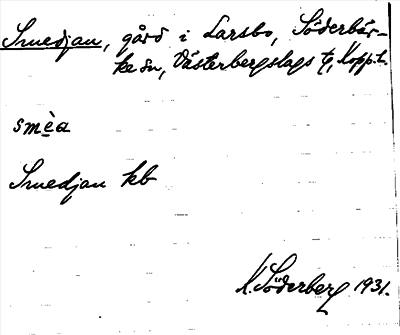 Smedjan, gård i Larsbo, Söderbär-
ke sn, Västerbergslags tg, Kopp.l.
smèa
Smedjan kb
K. Söderberg 1931.